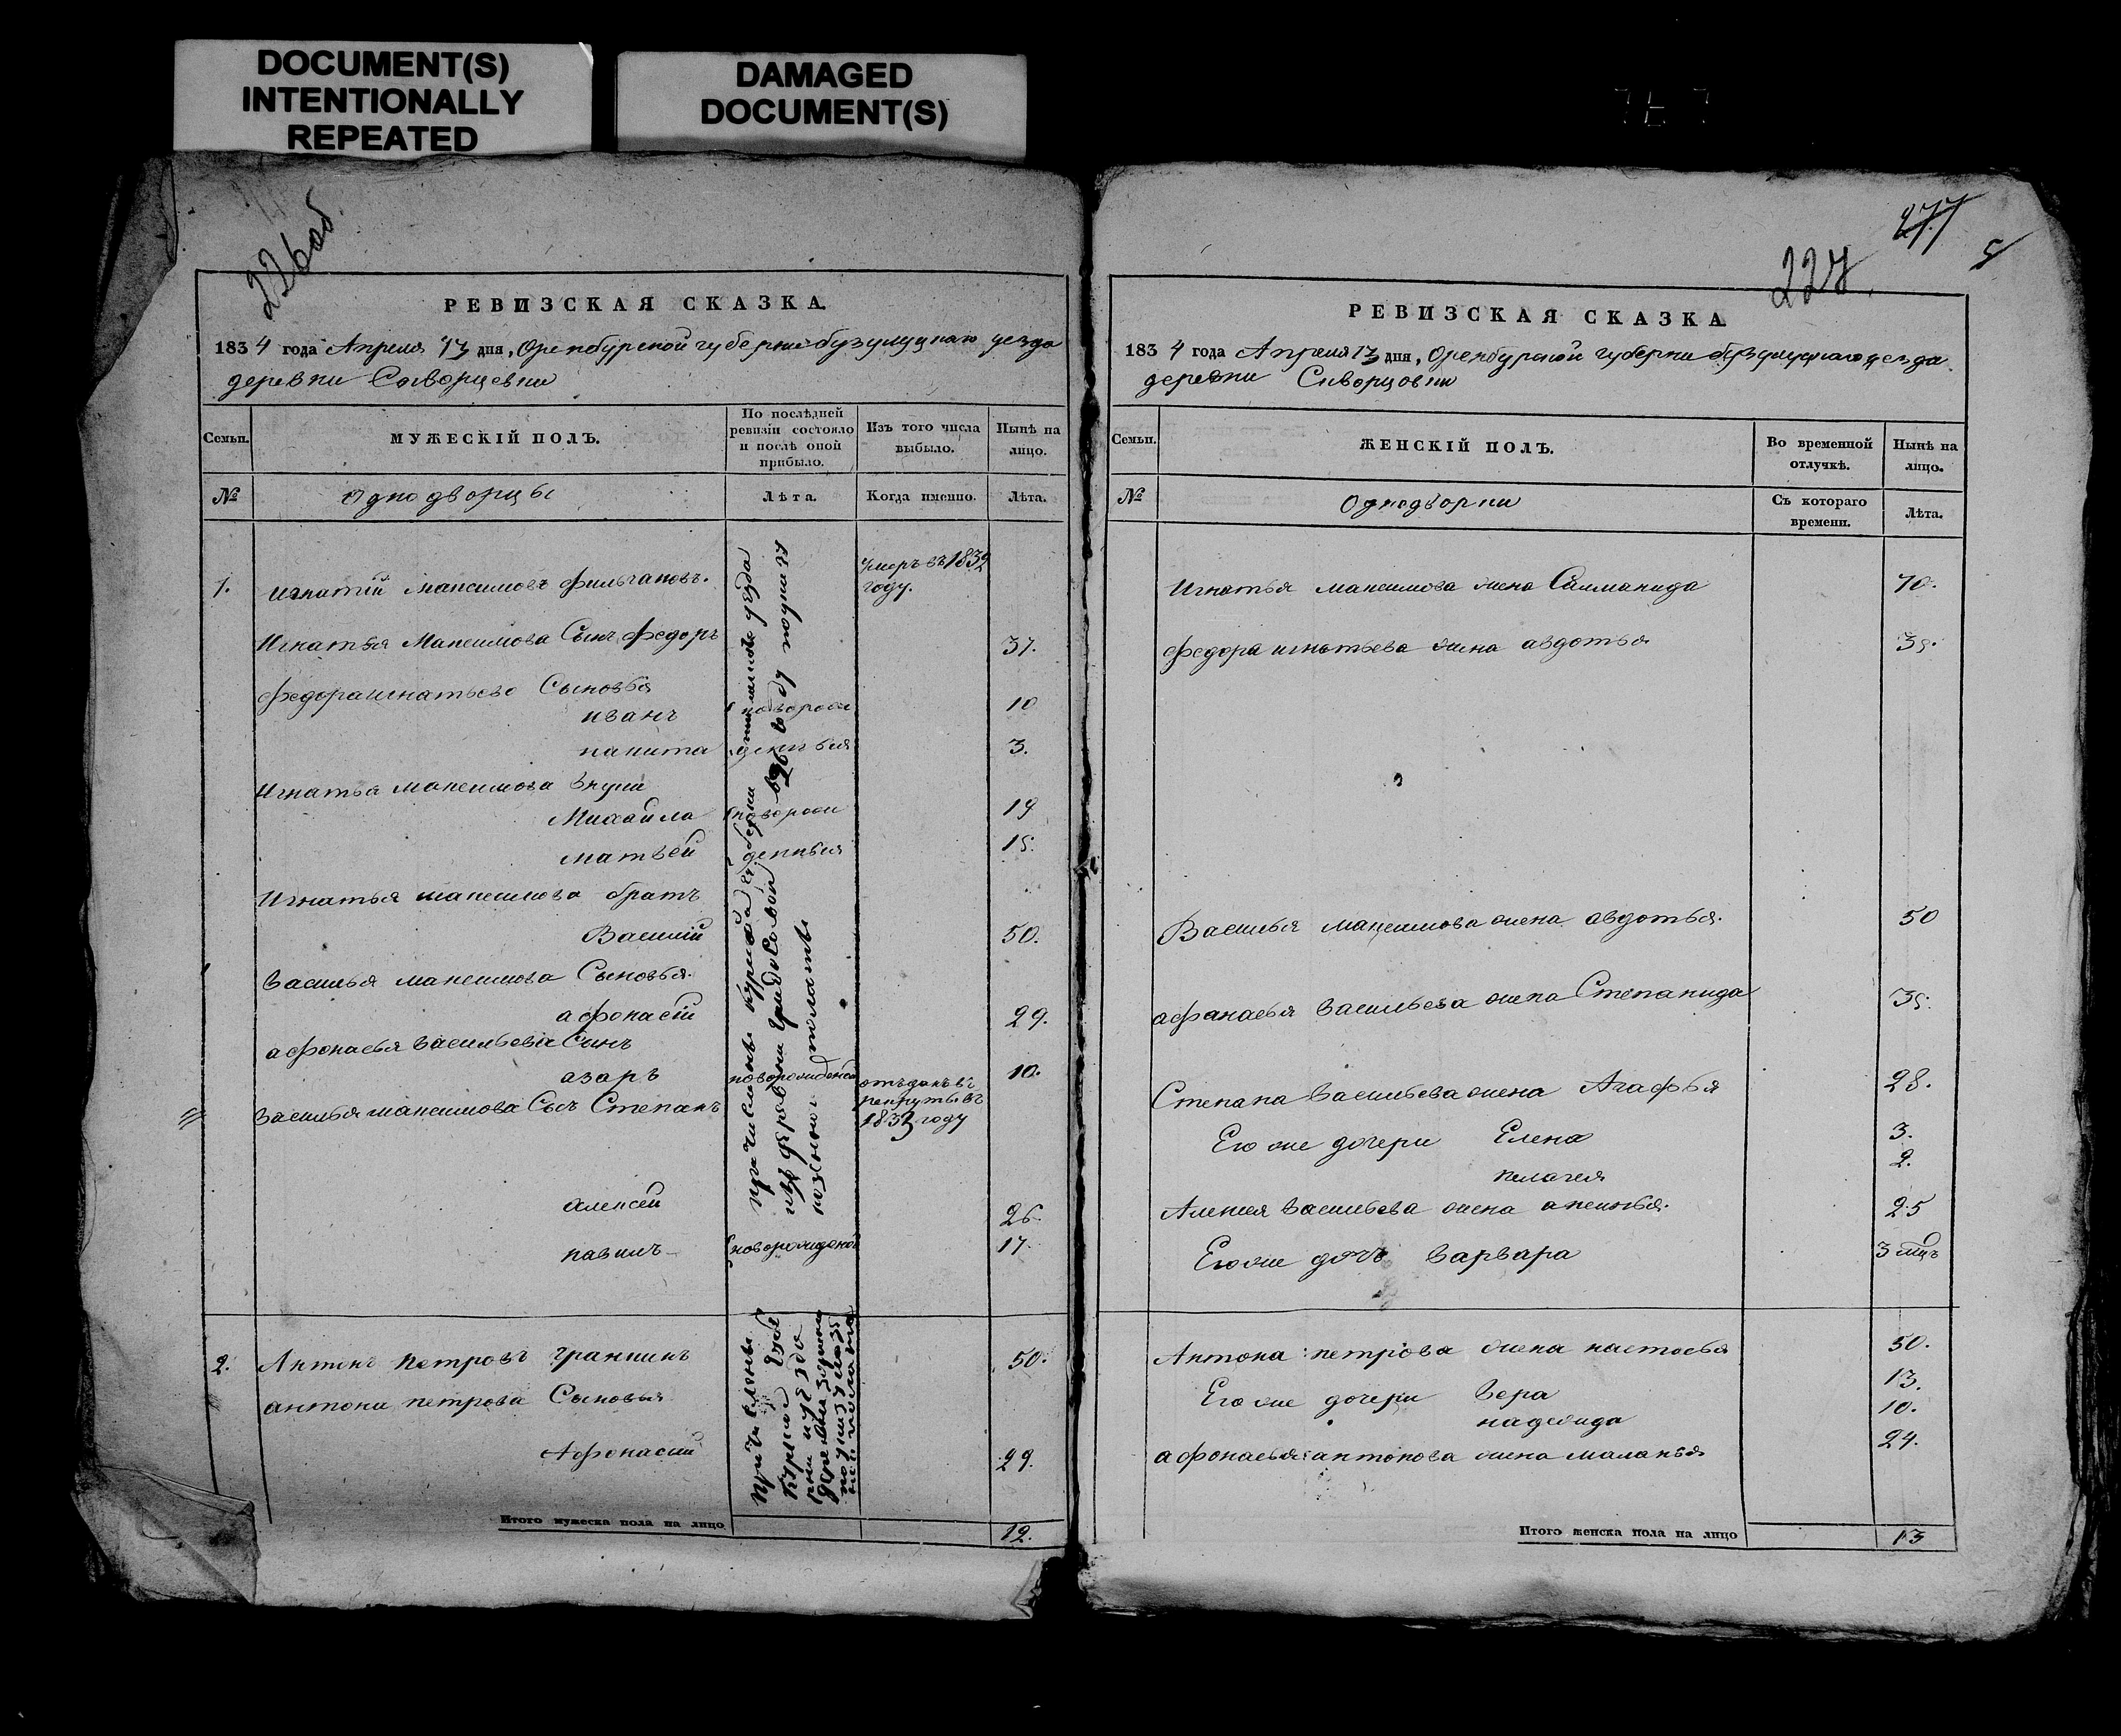 DOCUMENT(S)
INTENTIONALLY
REPEATED
DAMAGED
DOCUMENT(S)
226 об
РЕВИЗСКАЯ СКАЗКА
1834 года Апреля 13 дня, Оренбурской губерни бузулуцкаго уезда
деревни Скворцевки
Семьи.
МУЖЕСКІЙ ПОЛЪ.
По послѣдней
ревизіи состояло
и послѣ оной
прибыло.
Изъ того числа
выбыло.
Нынѣ на
лицо.
№
однодворцы
Лѣта.
Когда именно.
Лѣта.
1. Игнатій Максимовъ
умеръ въ 1832
году.
Игнатья Максимова Сынъ Федоръ 37.
Федора игнатьева Сыновья
иванъ новорож 10
никита денныя 3.
Игнатья максимова внуки
Михайла новорож 19
матвей денныя 15.
Игнатья максимова братъ
Василий 50.
Василья максимова Сыновья
афонасій 29.
афонасья васильева Сынъ
азаръ новорожденой 10.
Василья максимова Сынъ Степанъ
отъданъ въ
рекруты въ
1833 году
алексей 26
павилъ новорожденой 17.
из деревни
2. Антонъ Петровъ 50.
антона петрова Сыновья
Афонасий 29.
Итого мужеска пола на лицо 12.
277
5
227
РЕВИЗСКАЯ СКАЗКА
1834 года Апреля 13 дня, Оренбурской губерни бузулуцкаго уезда
деревни Скворцовки
Семьи.
ЖЕНСКІЙ ПОЛЪ.
Во временной
отлучкѣ.
Нынѣ на
лицо.
№
Однодворки
Съ котораго
времени.
Лѣта.
Игнатья максимова жена 70.
Федора игнатьева жена авдотья 35.
Василья максимова жена авдотья 50
афанасья Васильева жена Степанида 35.
Степана Васильева жена Агафья 28.
Его же дочери Елена 3.
пелагея 2.
Алексея Васильева жена аксинья 25
Его же дочь Варвара 3 мцъ
Антона петрова жена настасья 50.
Его же дочери Вера 13.
надежида 10.
афонасья антонова жена маланья 24.
Итого женска пола на лицо 13